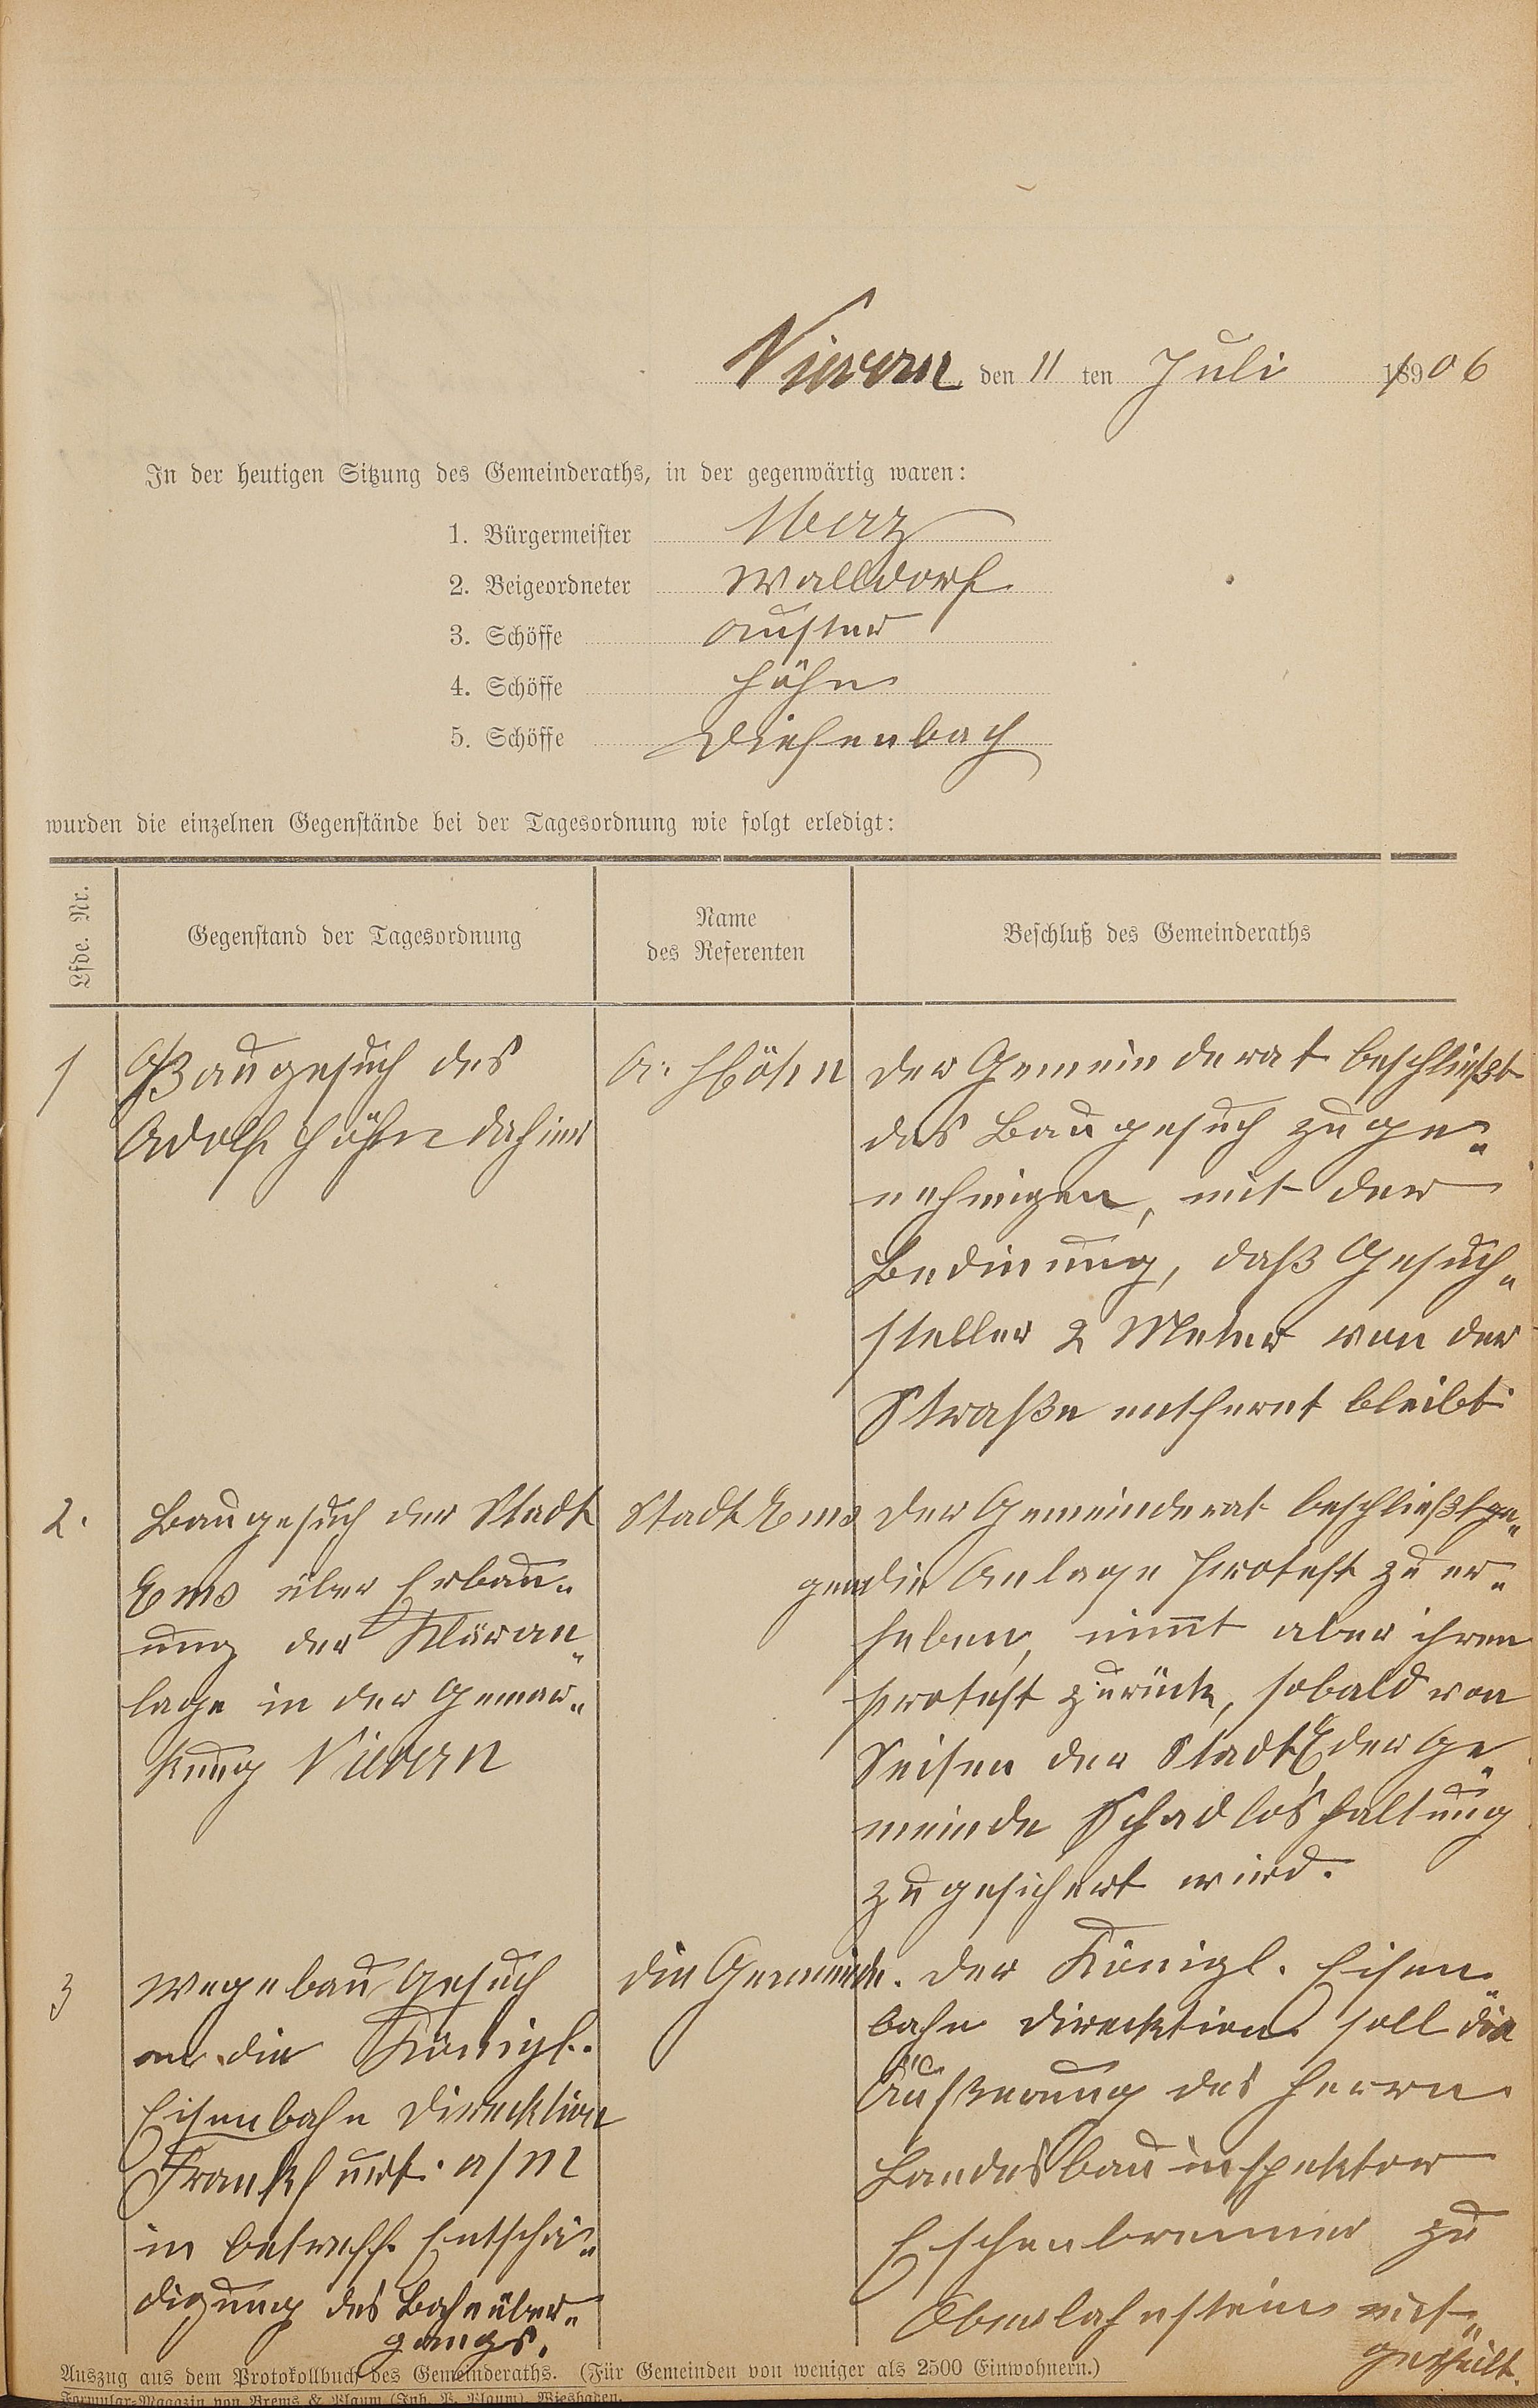 Nievern den 11 ten Juli 1906
In der heutigen Sitzung des Gemeinderaths, in der gegenwärtig waren:
1. Bürgermeister Merz
2. Beigeordneter Walldorf
3. Schöffe Auster
4. Schöffe Höhn
5. Schöffe Diefenbach
wurden die einzelnen Gegenstände bei der Tagesordnung wie folgt erledigt:
Lfde. Nr.
Gegenstand der Tagesordnung
Name
des Referenten
Beschluß des Gemeinderaths
1
Baugesuch des
Adolf Höhn dahier
A. Höhn
Der Gemeinderat beschließt
das Baugesuch zu ge-
nehmigen, mit der
Bedinung, daß Gesuch-
steller 2 Meter von der
Straße entfernt bleibt
2.
Baugesuch der Stadt
Ems über Erbau-
ung der Kläran-
lage in der Gemar-
kung Nievern
Stadt Ems
Der Gemeinderat beschließt ge-
gen die Anlage Protest zu er-
heben, nimt aber ihren
Protest zurück, sobald von
Seiten der Stadt E. der Ge-
meinde Schadloshaltung
zugesichert wird.
3
Wegebau Gesuch
an die Königl.
Eisenbahn Direcktion
Frankfurt a/M
in betreff Entschä-
digung des Bahnüber-
gangs.
Die Gemeinde.
Der Königl. Eisen-
bahn Direcktion soll die
Äußerung des Herrn
Landesbauinspektor
Eschenbrenner zu
Oberlahnstein mit-
getheilt.
Auszug aus dem Protokollbuch des Gemeinderaths. (Für Gemeinden von weniger als 2500 Einwohnern.)
Formular-Magazin von Brems & Plaum (Inh. P. Plaum), Wiesbaden.